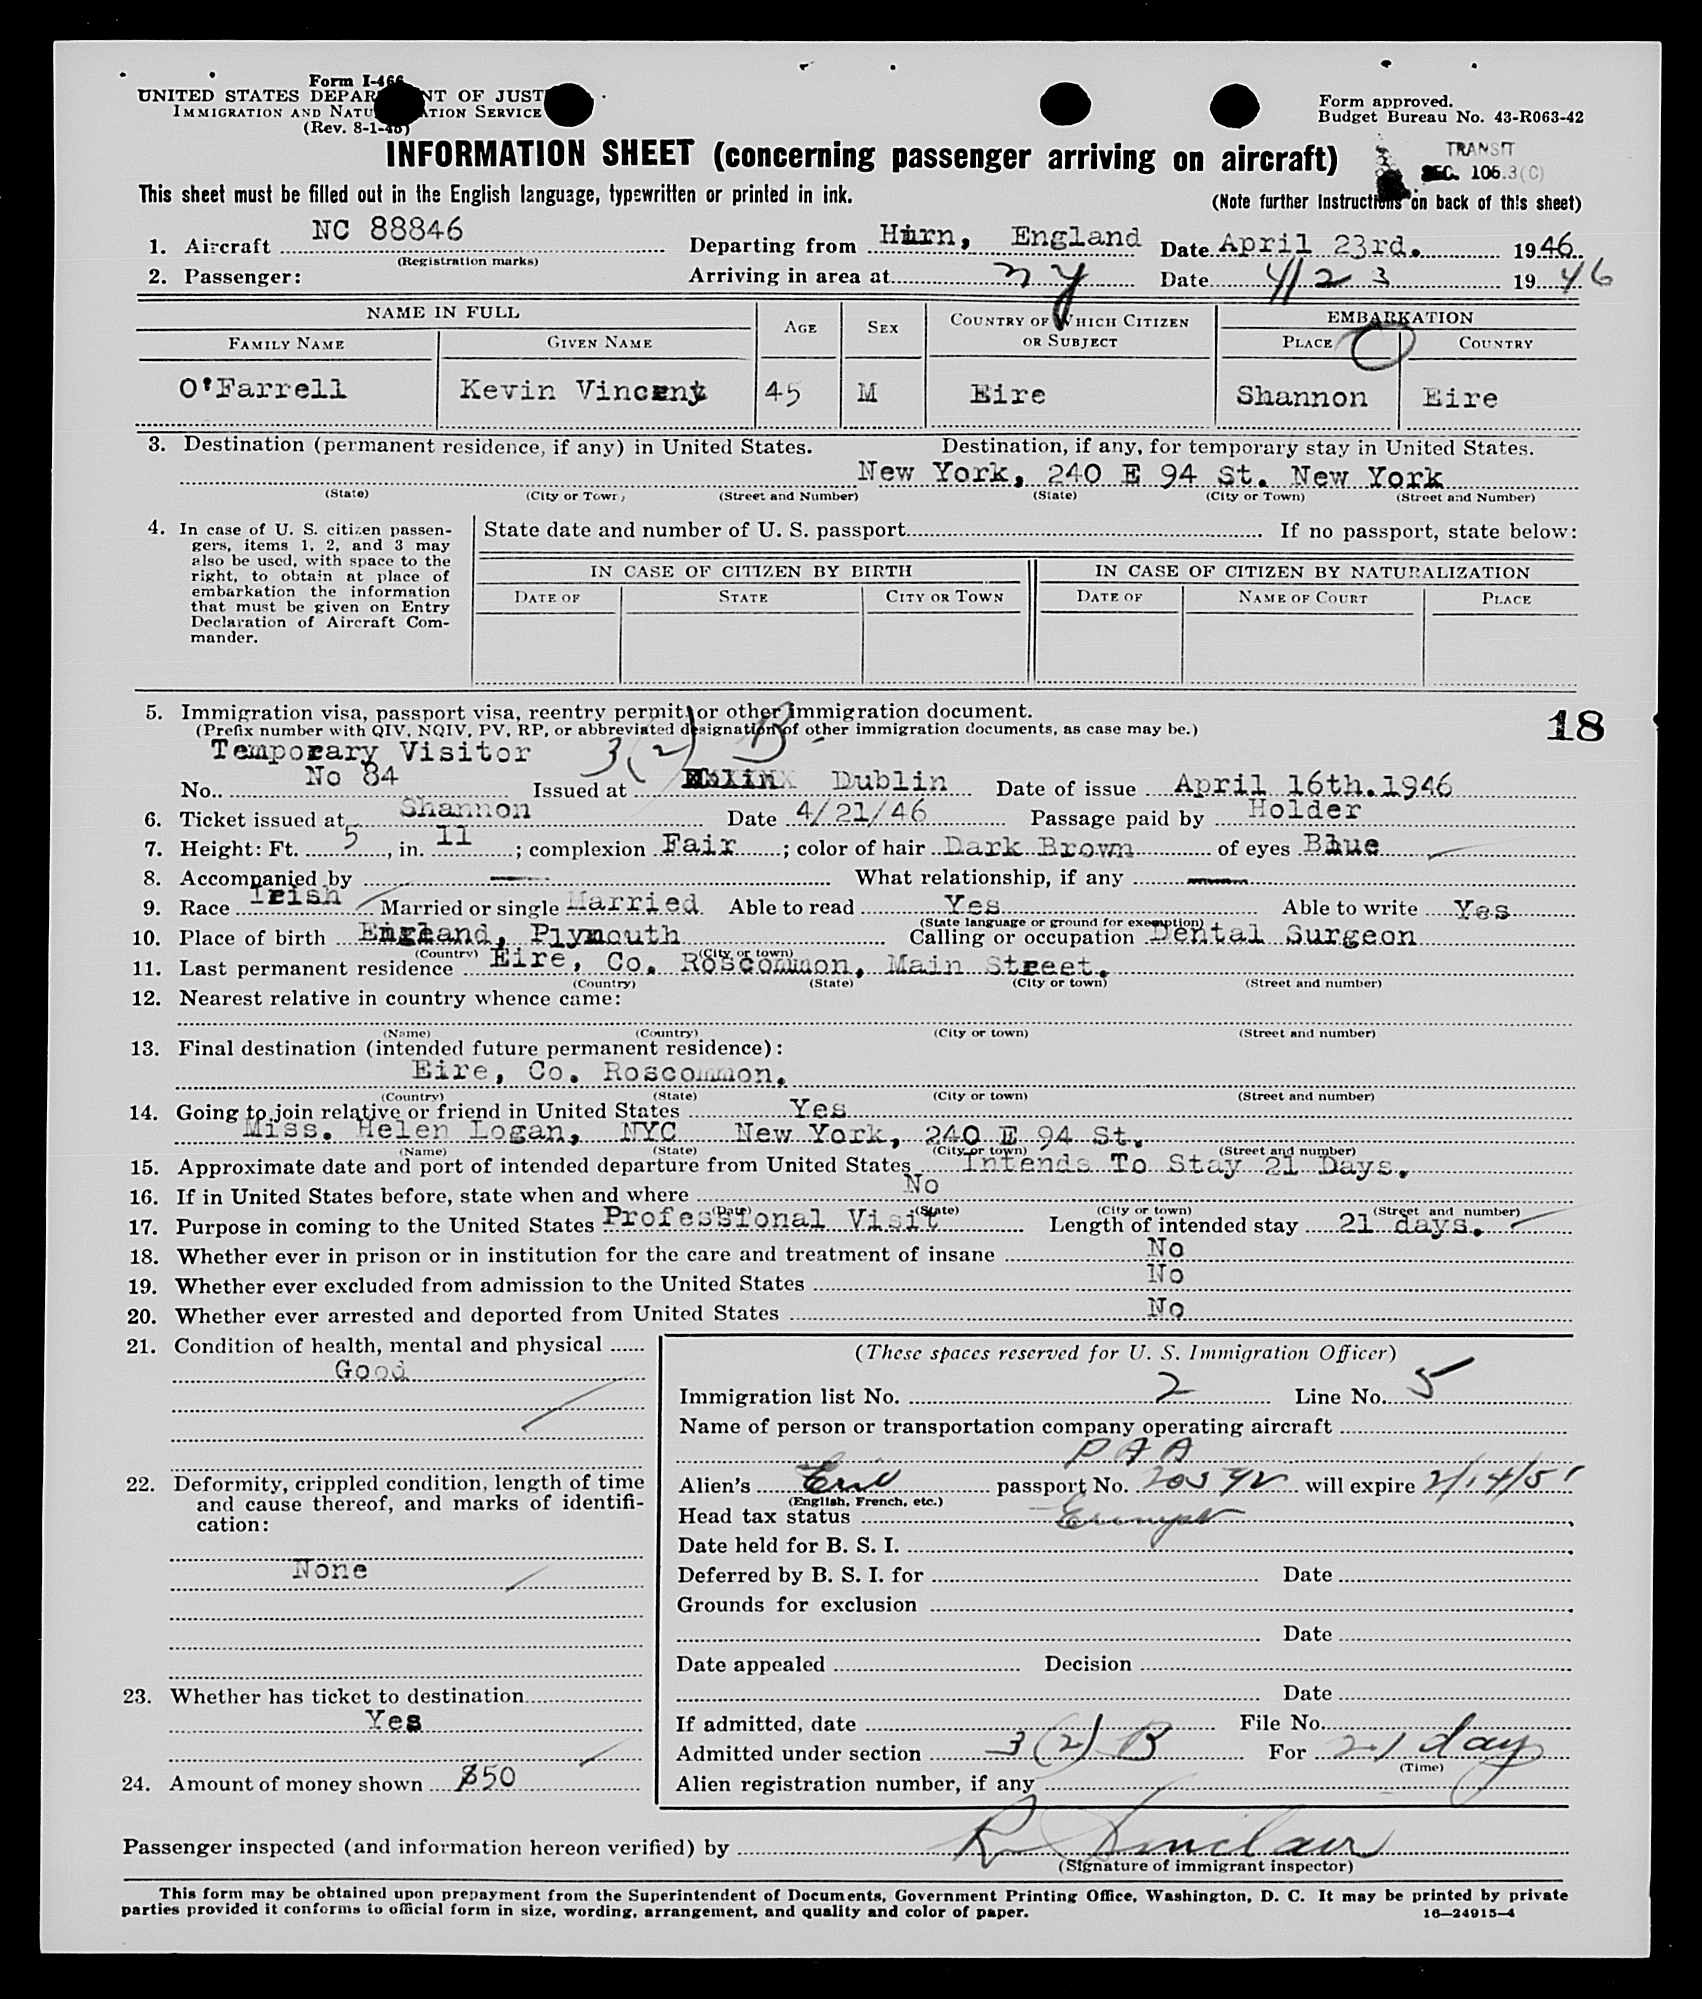 Form I-466
UNITED STATES DEPAR NT OF JUST
IMMIGRATION AND NATU ATION SERVICE
(Rev. 8-1-45)
Form approved.
Budget Bureau No. 43-R063-42
INFORMATION SHEET (concerning passenger arriving on aircraft)
TRANSIT
SEC. 106.3(C)
This sheet must be filled out in the English language, typewritten or printed in ink.
(Note further instructions on back of this sheet)
1. Aircraft NC 88846 Departing from Hurn, England Date April 23rd. 1946
(Registration marks)
2. Passenger: Arriving in area at NY Date 4/23 1946
NAME IN FULL AGE SEX COUNTRY OF WHICH CITIZEN OR SUBJECT EMBARKATION
FAMILY NAME GIVEN NAME PLACE COUNTRY
O'Farrell Kevin Vincent 45 M Eire Shannon Eire
3. Destination (permanent residence, if any) in United States. Destination, if any, for temporary stay in United States.
New York, 240 E 94 St. New York
(State) (City or Town) (Street and Number) (State) (City or Town) (Street and Number)
4. In case of U. S. citizen passengers, items 1, 2, and 3 may also be used, with space to the right, to obtain at place of embarkation the information that must be given on Entry Declaration of Aircraft Commander.
State date and number of U. S. passport If no passport, state below:
IN CASE OF CITIZEN BY BIRTH IN CASE OF CITIZEN BY NATURALIZATION
DATE OF STATE CITY OR TOWN DATE OF NAME OF COURT PLACE
5. Immigration visa, passport visa, reentry permit, or other immigration document.
18
(Prefix number with QIV, NQIV, PV, RP, or abbreviated designation of other immigration documents, as case may be.)
Temporary Visitor 3(2) B
No. No 84 Issued at Dublin Date of issue April 16th.1946
6. Ticket issued at Shannon Date 4/21/46 Passage paid by Holder
7. Height: Ft. 5, in. 11; complexion Fair; color of hair Dark Brown of eyes Blue
8. Accompanied by — What relationship, if any —
9. Race Irish Married or single Married Able to read Yes Able to write Yes
(State language or ground for exemption)
10. Place of birth England, Plymouth Calling or occupation Dental Surgeon
(Country) (City or town)
11. Last permanent residence Eire, Co. Roscommon, Main Street.
(Country) (State) (City or town) (Street and number)
12. Nearest relative in country whence came:
(Name) (Country) (City or town) (Street and number)
13. Final destination (intended future permanent residence):
Eire, Co. Roscommon.
(Country) (State) (City or town) (Street and number)
14. Going to join relative or friend in United States Yes
Miss. Helen Logan, NYC New York, 240 E 94 St.
(Name) (State) (City or town) (Street and number)
15. Approximate date and port of intended departure from United States Intends To Stay 21 Days.
16. If in United States before, state when and where No
(Date) (State) (City or town) (Street and number)
17. Purpose in coming to the United States Professional Visit Length of intended stay 21 days.
18. Whether ever in prison or in institution for the care and treatment of insane No
19. Whether ever excluded from admission to the United States No
20. Whether ever arrested and deported from United States No
21. Condition of health, mental and physical
Good
22. Deformity, crippled condition, length of time and cause thereof, and marks of identification:
None
23. Whether has ticket to destination
Yes
24. Amount of money shown $50
(These spaces reserved for U. S. Immigration Officer)
Immigration list No. 2 Line No. 5
Name of person or transportation company operating aircraft
PAA
Alien's Eire passport No. 20342 will expire 2/14/51
(English, French, etc.)
Head tax status Exempt
Date held for B. S. I.
Deferred by B. S. I. for Date
Grounds for exclusion
Date
Date appealed Decision
Date
If admitted, date File No.
Admitted under section 3(2) B For 21 day
(Time)
Alien registration number, if any
Passenger inspected (and information hereon verified) by R Sinclair
(Signature of immigrant inspector)
This form may be obtained upon prepayment from the Superintendent of Documents, Government Printing Office, Washington, D. C. It may be printed by private
parties provided it conforms to official form in size, wording, arrangement, and quality and color of paper.
16—24915-4